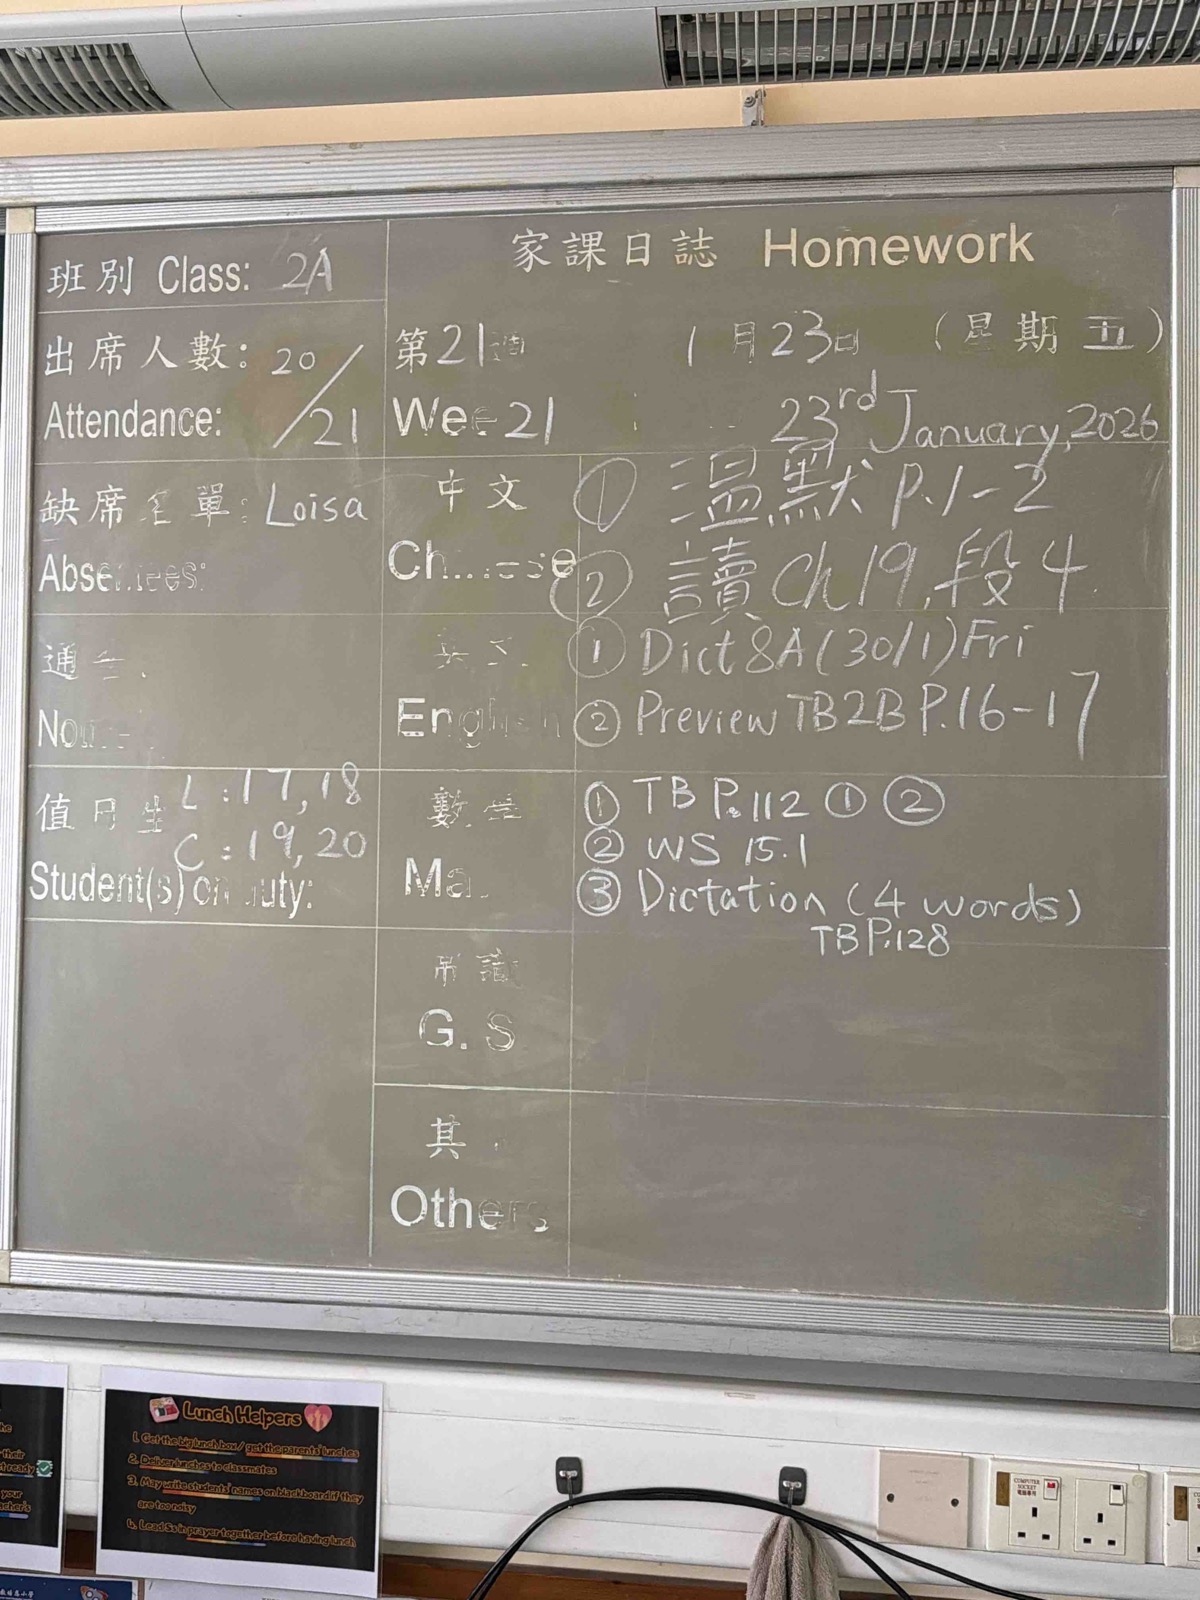 家課日誌 Homework
班別 Class: 2A
出席人數: 20/21
Attendance:
第21週 1月23日 (星期五)
Wee 21 23rd January, 2026
缺席名單: Loisa
Absentees:
中文
Chinese
① 溫默 P.1-2
② 讀 Ch 19, 段 4
通
No
English
① Dict 8A (30/1) Fri
② Preview TB2B P.16-17
值日生 L: 17, 18
C: 19, 20
Student(s) on duty:
數學
Ma
① TB P.112 ① ②
② WS 15.1
③ Dictation (4 words)
TB P.128
常識
G. S
其
Others
Lunch Helpers
1. Get the big lunch box / get the parents' lunches
2. Deliver lunches to classmates
3. May write students' names on blackboard if they
are too noisy
4. Lead Ss in prayer together before having lunch
their
your
COMPUTER
SOCKET
電腦專用